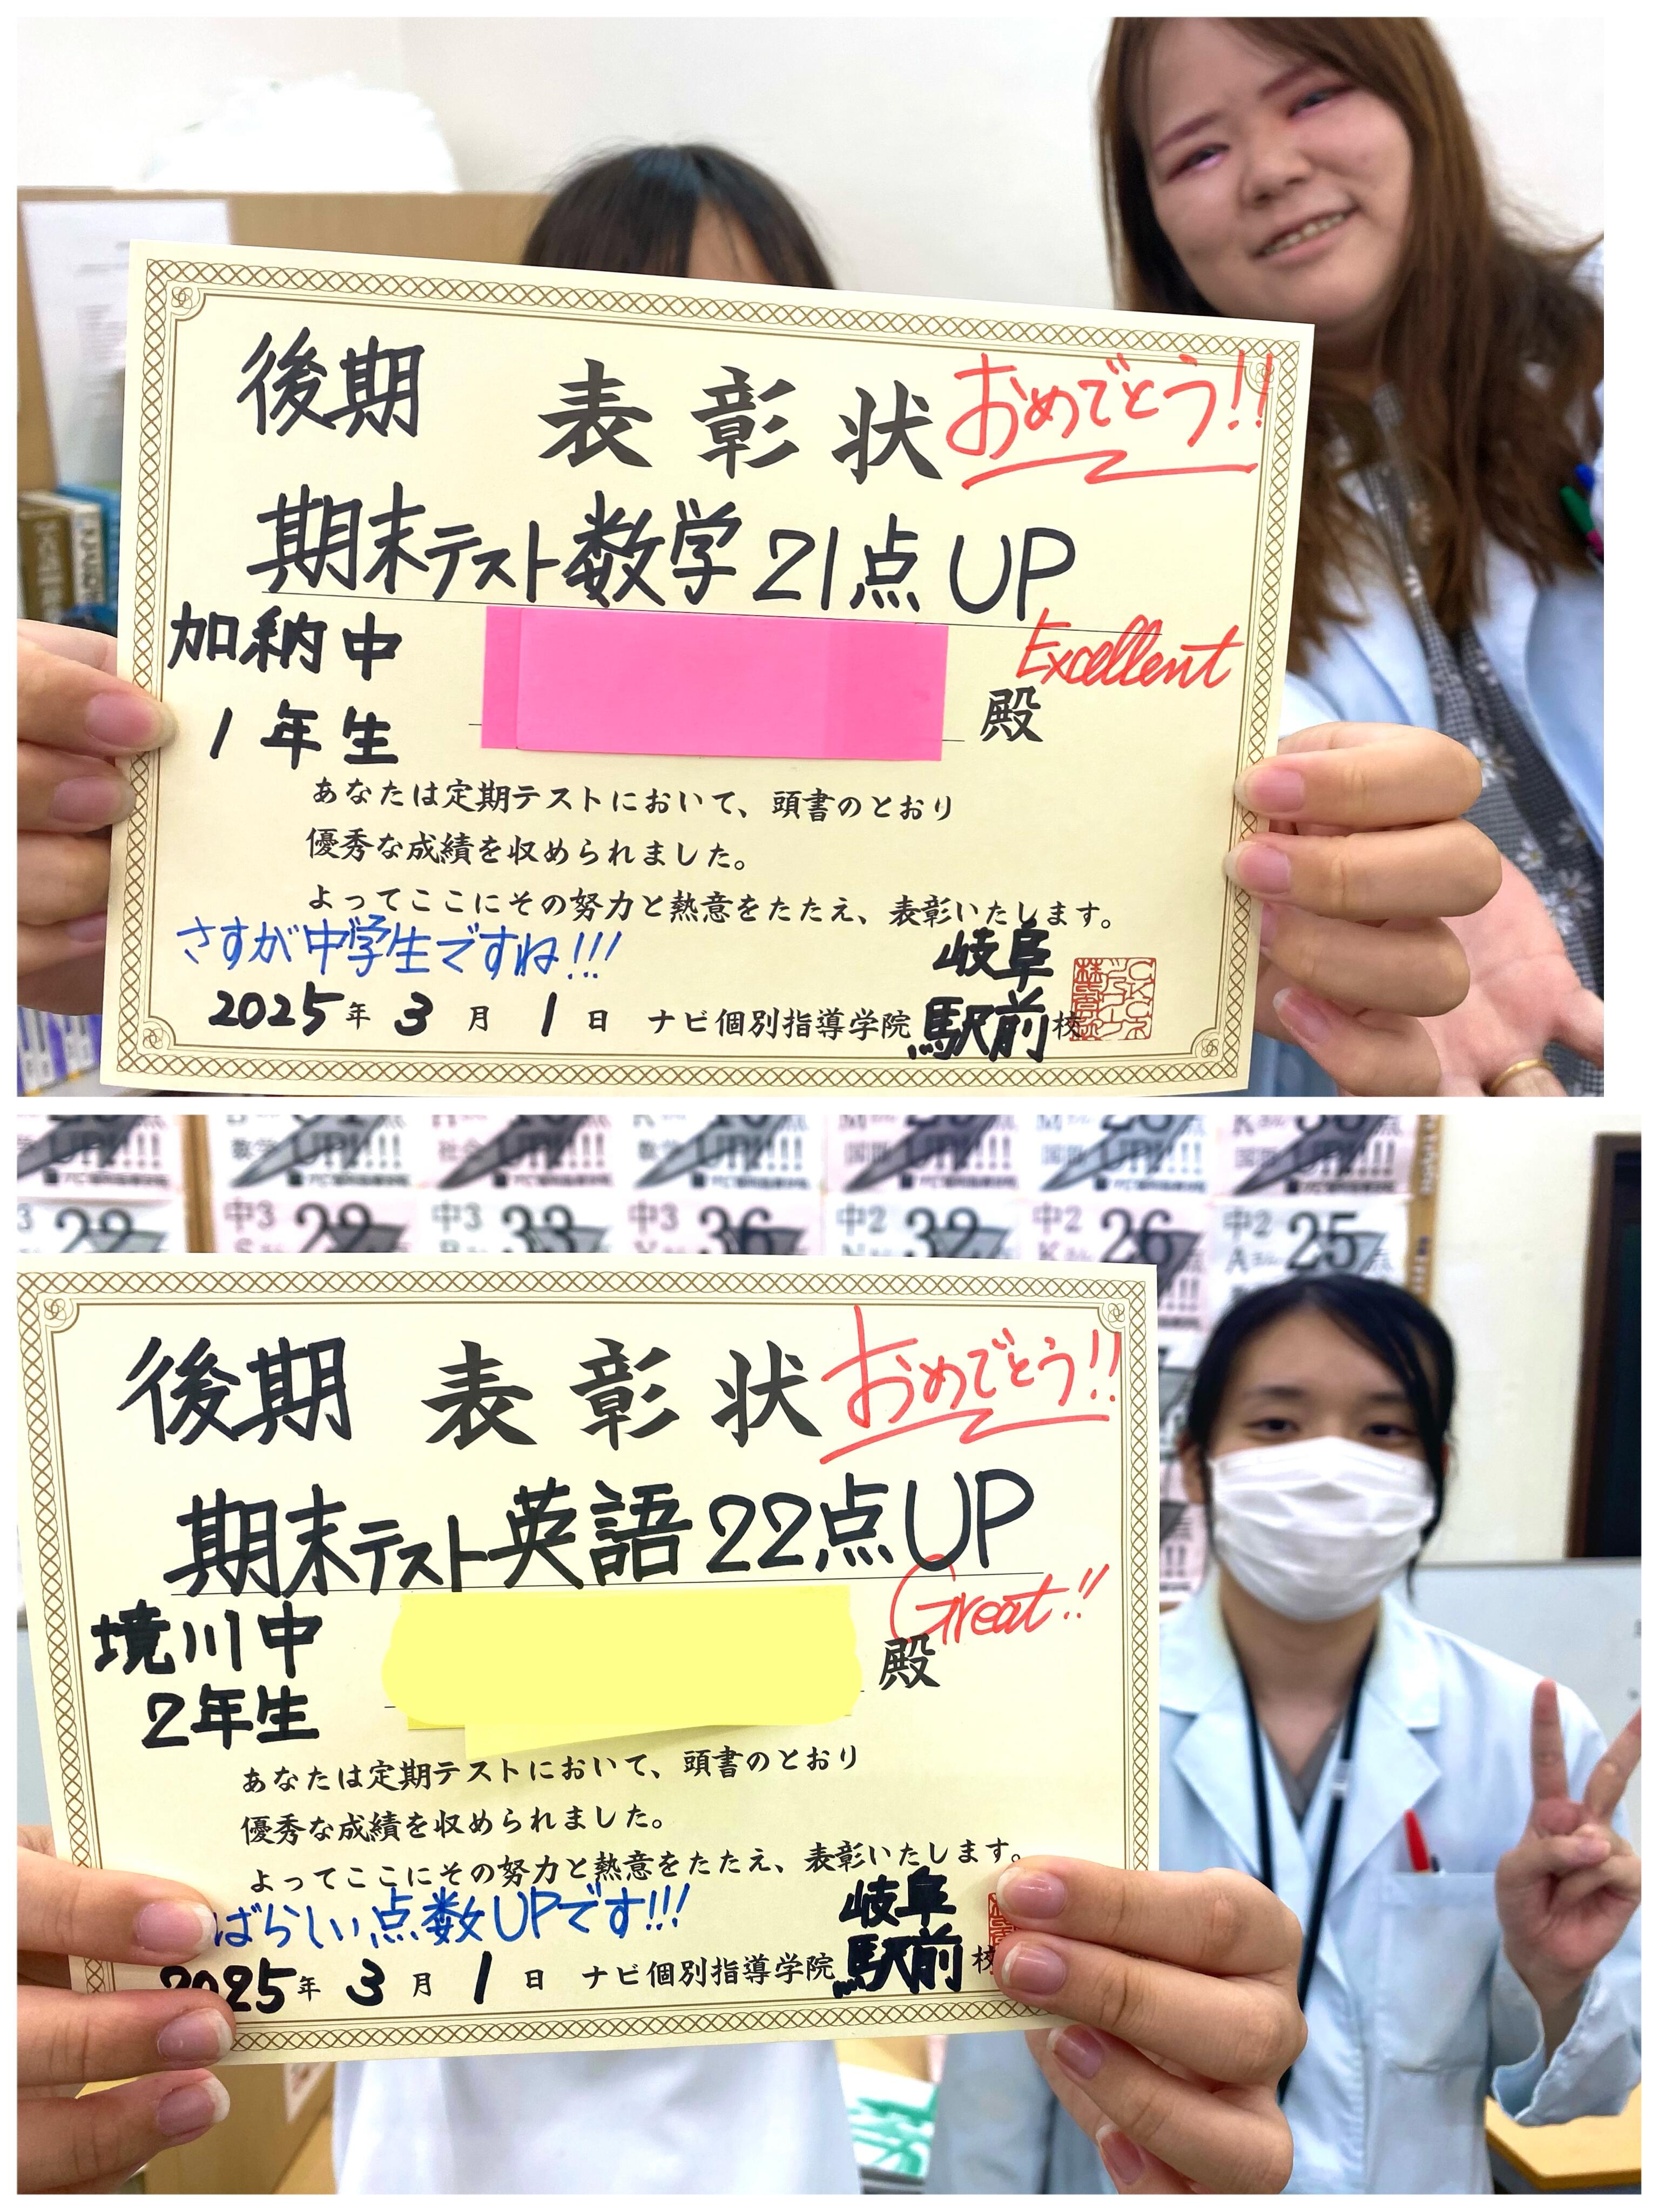 後期 表彰状 おめでとう!!
期末テスト数学21点UP
加納中
Excellent
1年生
殿
あなたは定期テストにおいて、頭書のとおり
優秀な成績を収められました。
よってここにその努力と熱意をたたえ、表彰いたします。
さすが中学生ですね!!!
岐阜
2025年 3月 1日 ナビ個別指導学院 駅前校
数学 UP!!!
社会 UP!!!
数学 UP!!!
国語 UP!!!
国語 UP!!!
国語 UP!!!
中3 22
中3 33
中3 36
中2 32
中2 26
中2 25
後期 表彰状 おめでとう!!
期末テスト英語22点UP
境川中
Great!!
2年生
殿
あなたは定期テストにおいて、頭書のとおり
優秀な成績を収められました。
よってここにその努力と熱意をたたえ、表彰いたします。
ばらしい点数UPです!!!
岐阜
2025年 3月 1日 ナビ個別指導学院 駅前校